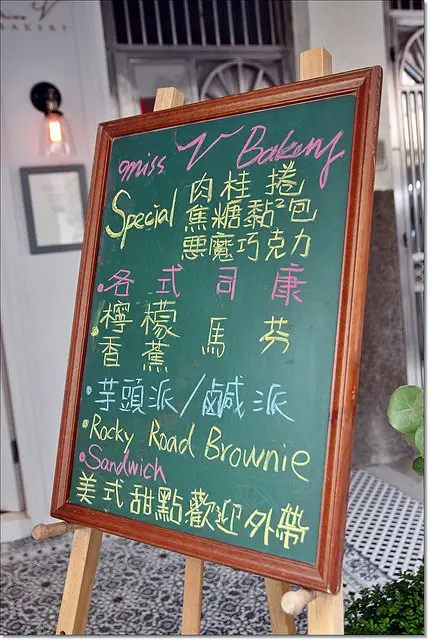 V
BAKERY
miss V Bakery
Special 肉桂捲
焦糖黏²包
惡魔巧克力
•各式司康
•檸檬
香蕉 馬芬
•芋頭派/鹹派
•Rocky Road Brownie
•Sandwich
美式甜點歡迎外帶